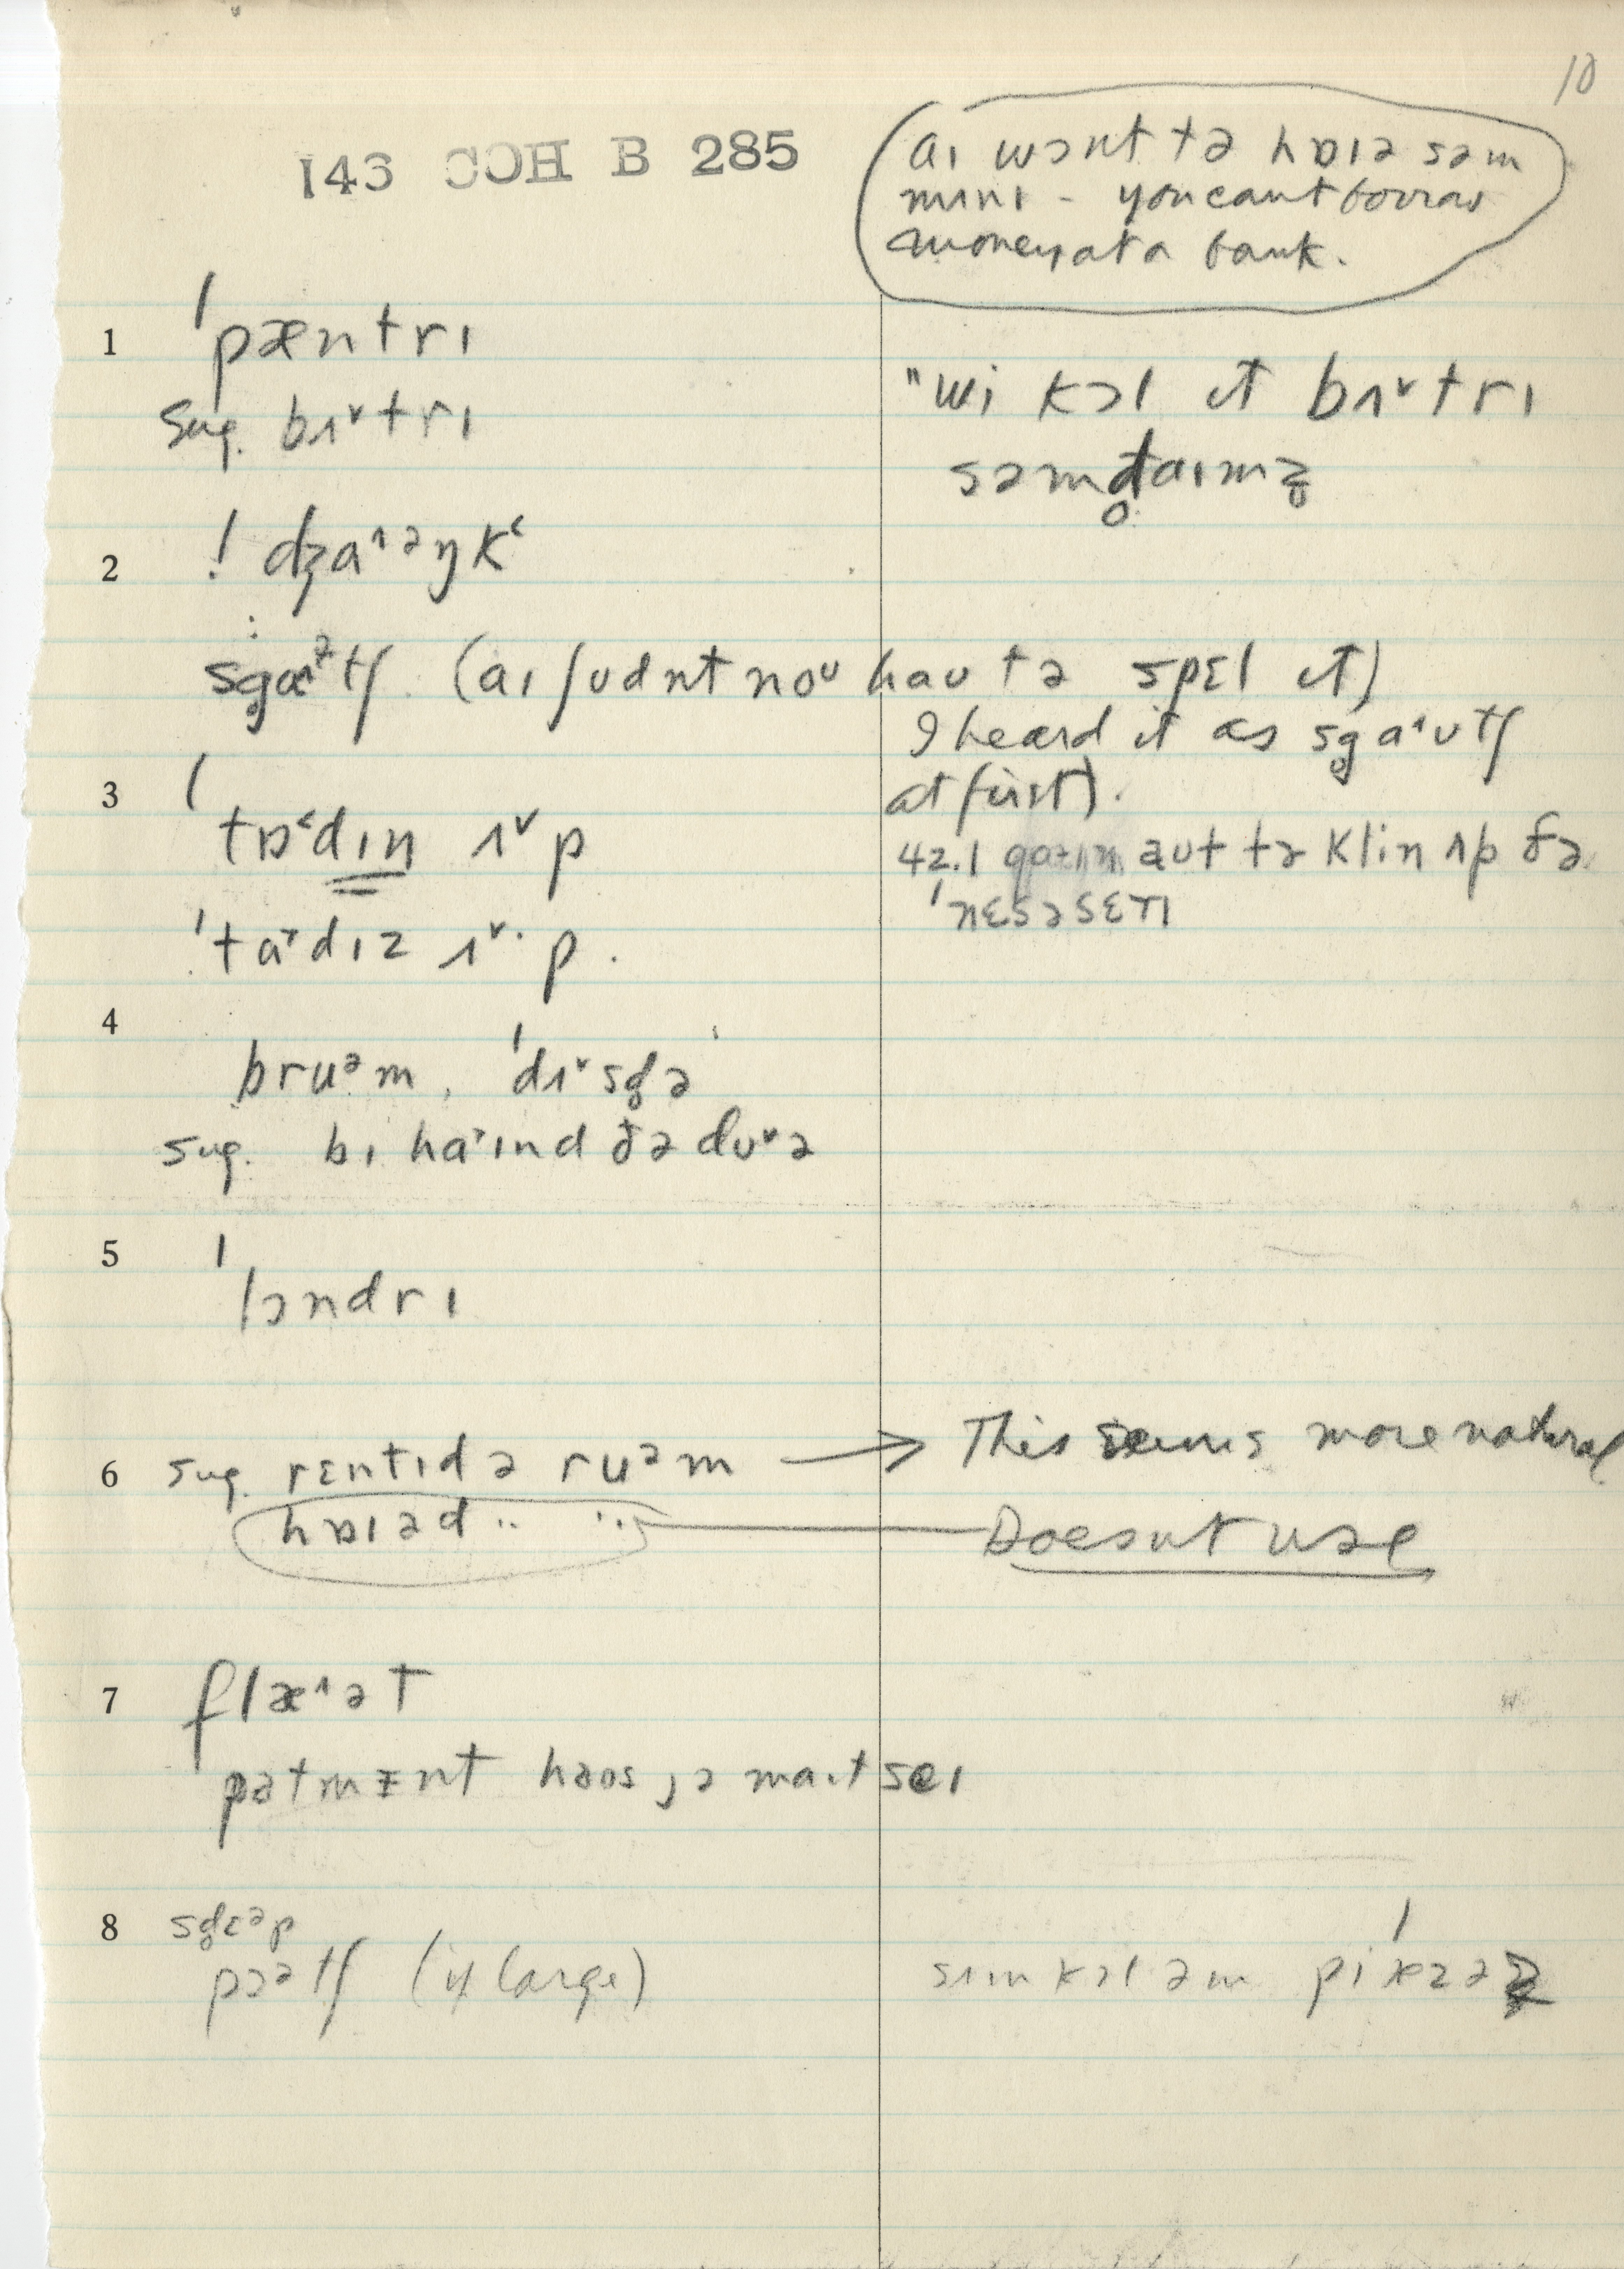 10
143 COH B 285
aɪ wɔnt tə hɒɪə səm
mʌnɪ - you cant borrow
money at a bank.
1 ˈpæntrɪ
sug. bʌ˅trɪ
"wi kɔl ɪt bʌ˅trɪ
səmd̥aɪmz̥
2 ! dʒa^əŋk‘
sg̊æ^ətʃ (aɪ ʃʊdnt noᴜ haʊ tə spɛl ɪt)
I heard it as sg̊a^ʊtʃ
at first).
3 ˈtɒ‘dɪn ʌ˅p
42.1 aʊt tə klin ʌp ðə
ˈnɛsəsɛrɪ
ˈta˃dɪz ʌ˅·p.
4 bruᵊm, ˈdʌ˅sd̥ə
sug. bɪ ha˃ɪnd ðə dʊ˅ə
5 ˈlɔndrɪ
6 sug. rɛntɪd ə ruᵊm → This seems more natural
hɒɪəd ·· ·· Doesnt use
7 flæ^ət
patmɪnt haʊs, ə maɪt seɪ
8 sg̊ɛᵊp
pɔᵊtʃ (if large)
sʌm kɔl əm piˈæzəz